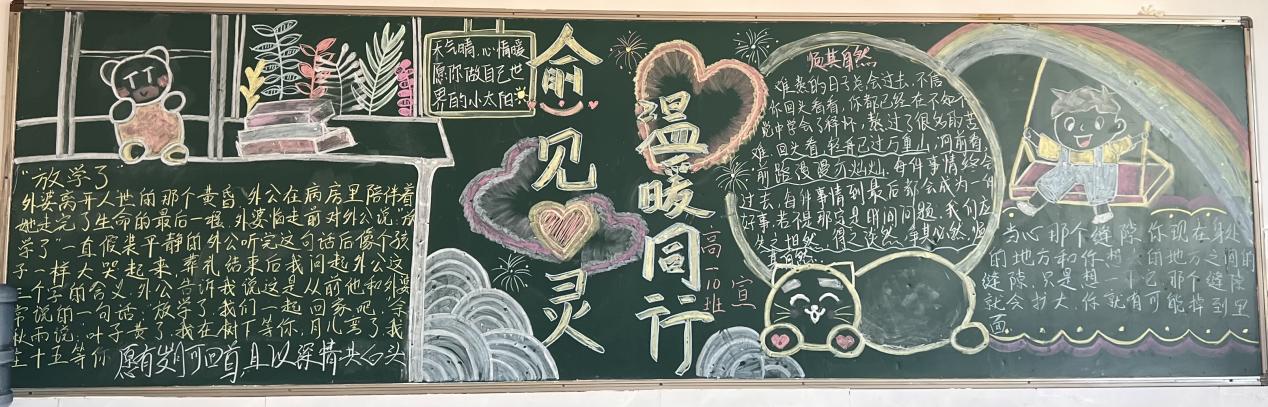 “放学了”
外婆离开人世的那个黄昏,外公在病房里陪伴着
她走完了生命的最后一程,外婆临走前对外公说“放
学了”一直假装平静的外公听完这句话后像个孩
子一样大哭起来,葬礼结束后我问起外公这
三个字的含义,外公告诉我说这是从前他和外婆
常说的一句话:放学了,我们一起回家吧,余
秋雨说,叶子黄了,我在树下等你,月儿弯了我
在十五等你
愿有岁月可回首且以深情共白头
天气晴,心情暖
愿你做自己世
界的小太阳
俞见灵
温暖同行
高一10班 宣
顺其自然
难熬的日子总会过去,不信
你回头看看,你都已经在不知不
觉中学会了释怀,熬过了很多艰苦
难,回头看,轻舟已过万重山,向前看
前路漫漫亦灿灿,每件事情终会
过去,每件事情到最后都会成为一件
好事,若不是那定是时间问题,我们应
失之坦然,得之淡然,争其必然,顺
其自然
当心那个缝隙,你现在身处
的地方和你想 的地方之间的
缝隙,只是想一下已,那个缝隙
就会扩大,你就有可能掉到里
面